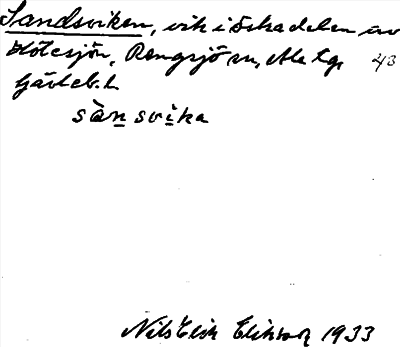 Sandsviken, vik i östra delen av
Hötesjön, Rengsjö sn, Ala tg, 43
Gävleb. l.
sànsvika
Nils Erik Eliason 1933